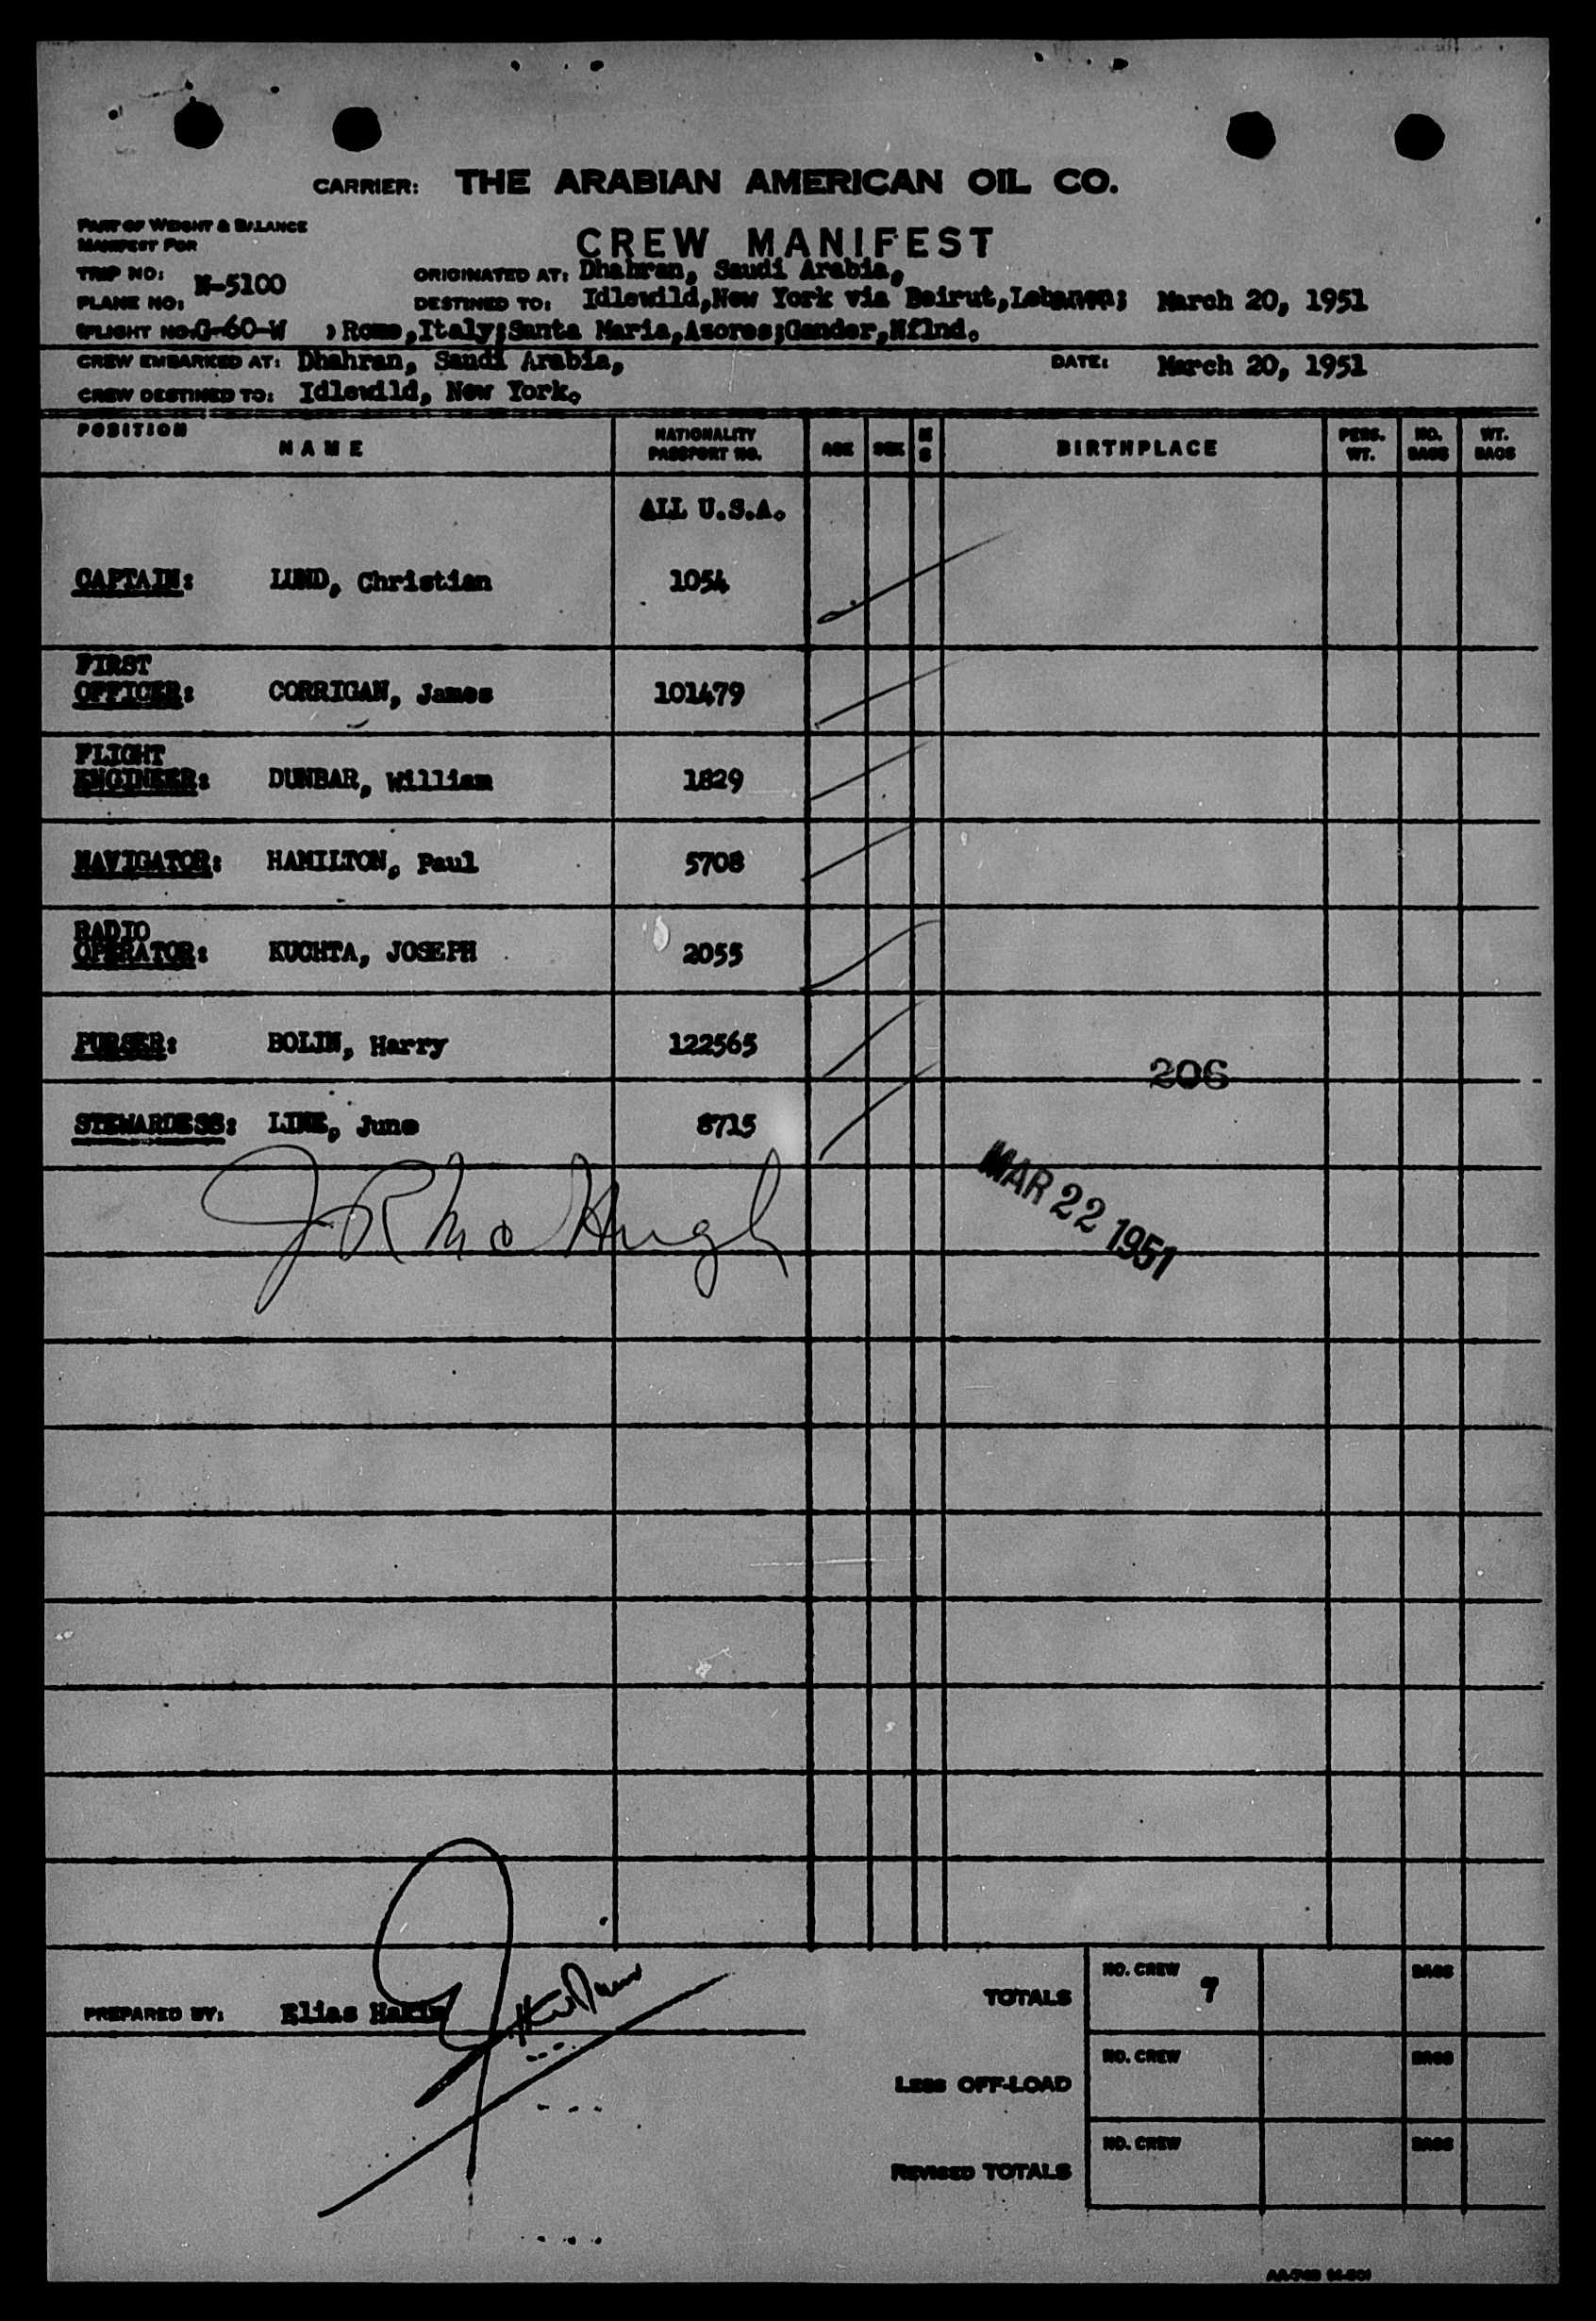 CARRIER: THE ARABIAN AMERICAN OIL CO.
PART OF WEIGHT & BALANCE
MANIFEST FOR
CREW MANIFEST
TRIP NO: N-5100
ORIGINATED AT: Dhahran, Saudi Arabia,
PLANE NO:
DESTINED TO: Idlewild,New York via Beirut,Lebanon; March 20, 1951
(FLIGHT NO.G-60-W ) Rome,Italy;Santa Maria,Azores;Gander,Nflnd.
CREW EMBARKED AT: Dhahran, Saudi Arabia, DATE: March 20, 1951
CREW DESTINED TO: Idlewild, New York.
POSITION NAME NATIONALITY PASSPORT NO. AGE SEX M S BIRTHPLACE PERS. WT. NO. BAGS WT. BAGS
ALL U.S.A.
CAPTAIN: LUND, Christian 1054
FIRST
OFFICER: CORRIGAN, James 101479
FLIGHT
ENGINEER: DUNBAR, William 1829
NAVIGATOR: HAMILTON, Paul 5708
RADIO
OPERATOR: KUCHTA, JOSEPH 2055
PURSER: BOLIN, Harry 122565
206
STEWARDESS: LINE, June 8715
J R McHugh
MAR 22 1951
PREPARED BY: Elias Hakim
TOTALS NO. CREW 7 BAGS
LESS OFF-LOAD NO. CREW BAGS
REVISED TOTALS NO. CREW BAGS